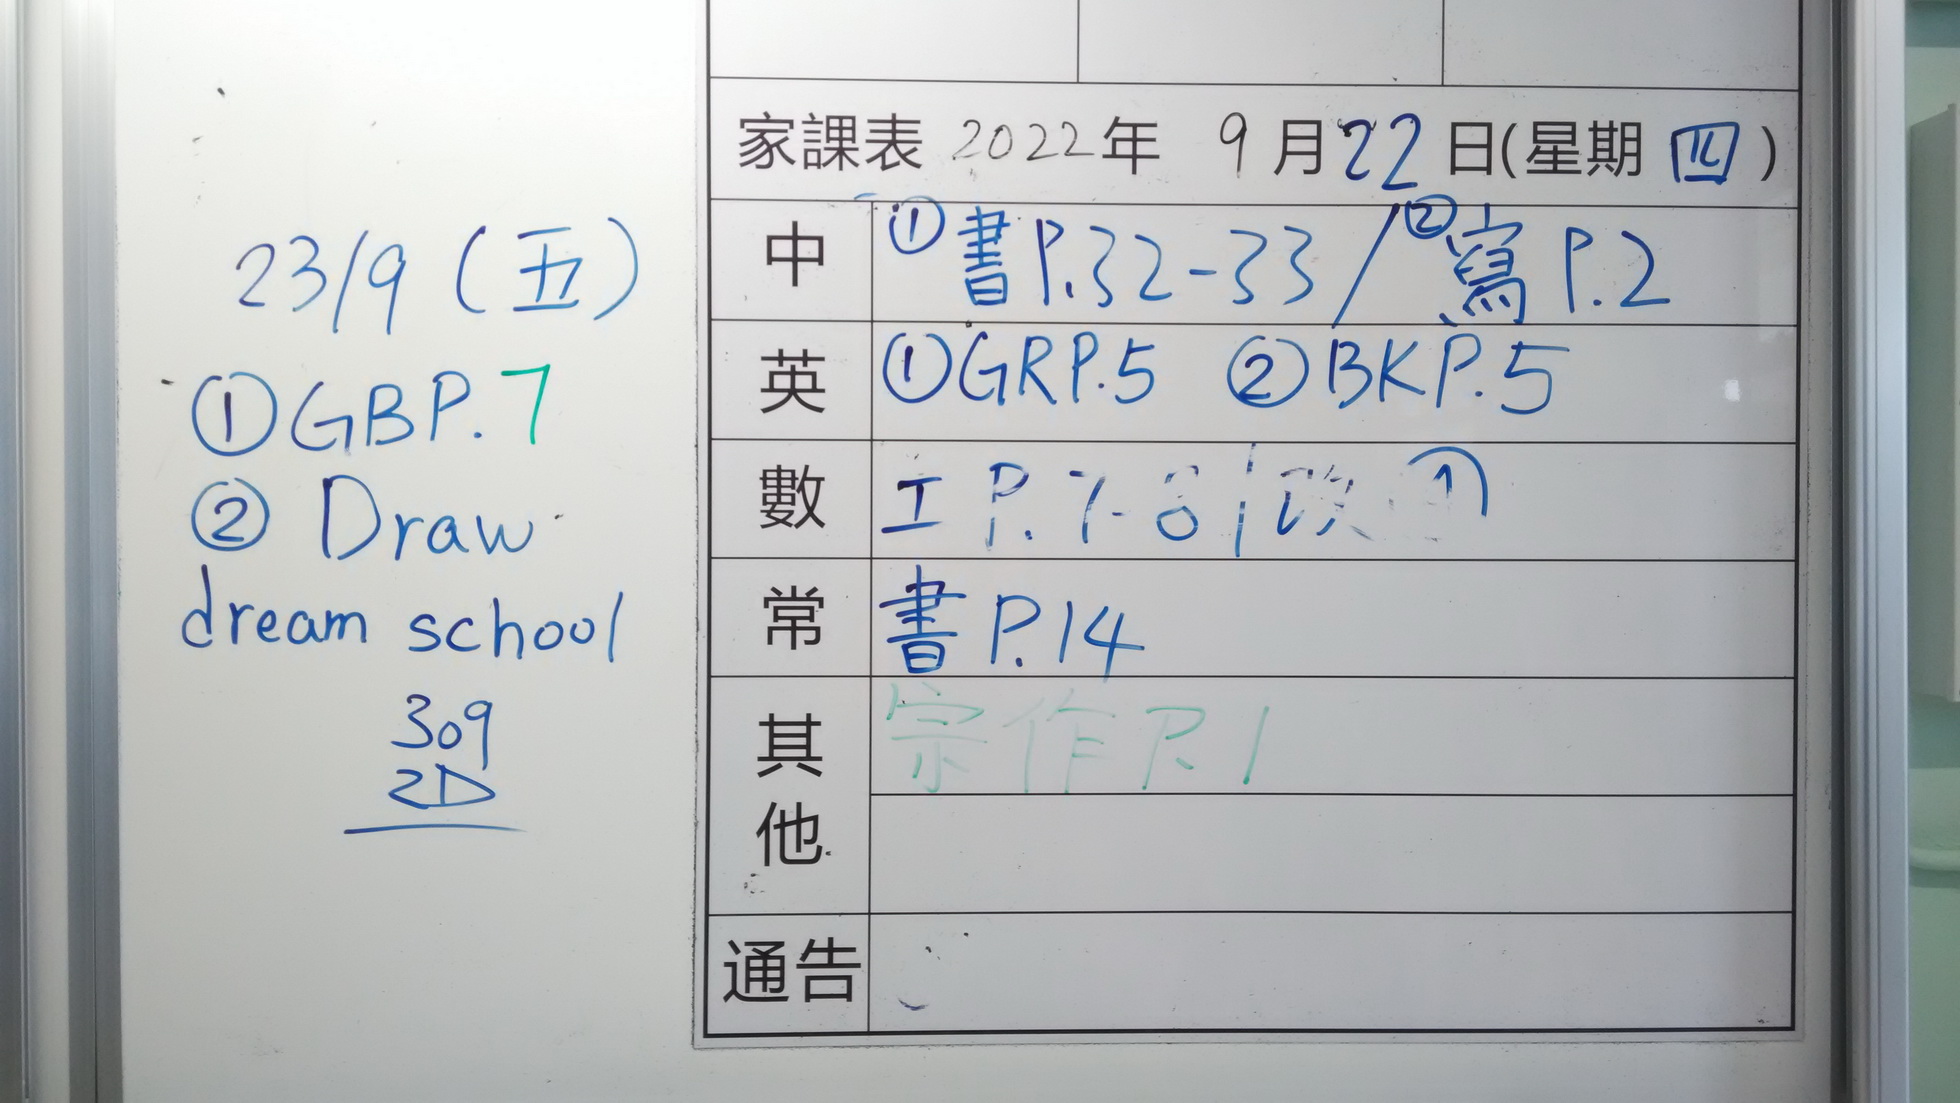 家課表 2022年 9月22日(星期四)
中 ①書P.32-33/②寫P.2
英 ①GRP.5 ②BKP.5
數 工P.7-8/改①
常 書P.14
其他 宗作P.1
通告
23/9(五)
①GBP.7
②Draw
dream school
309
2D